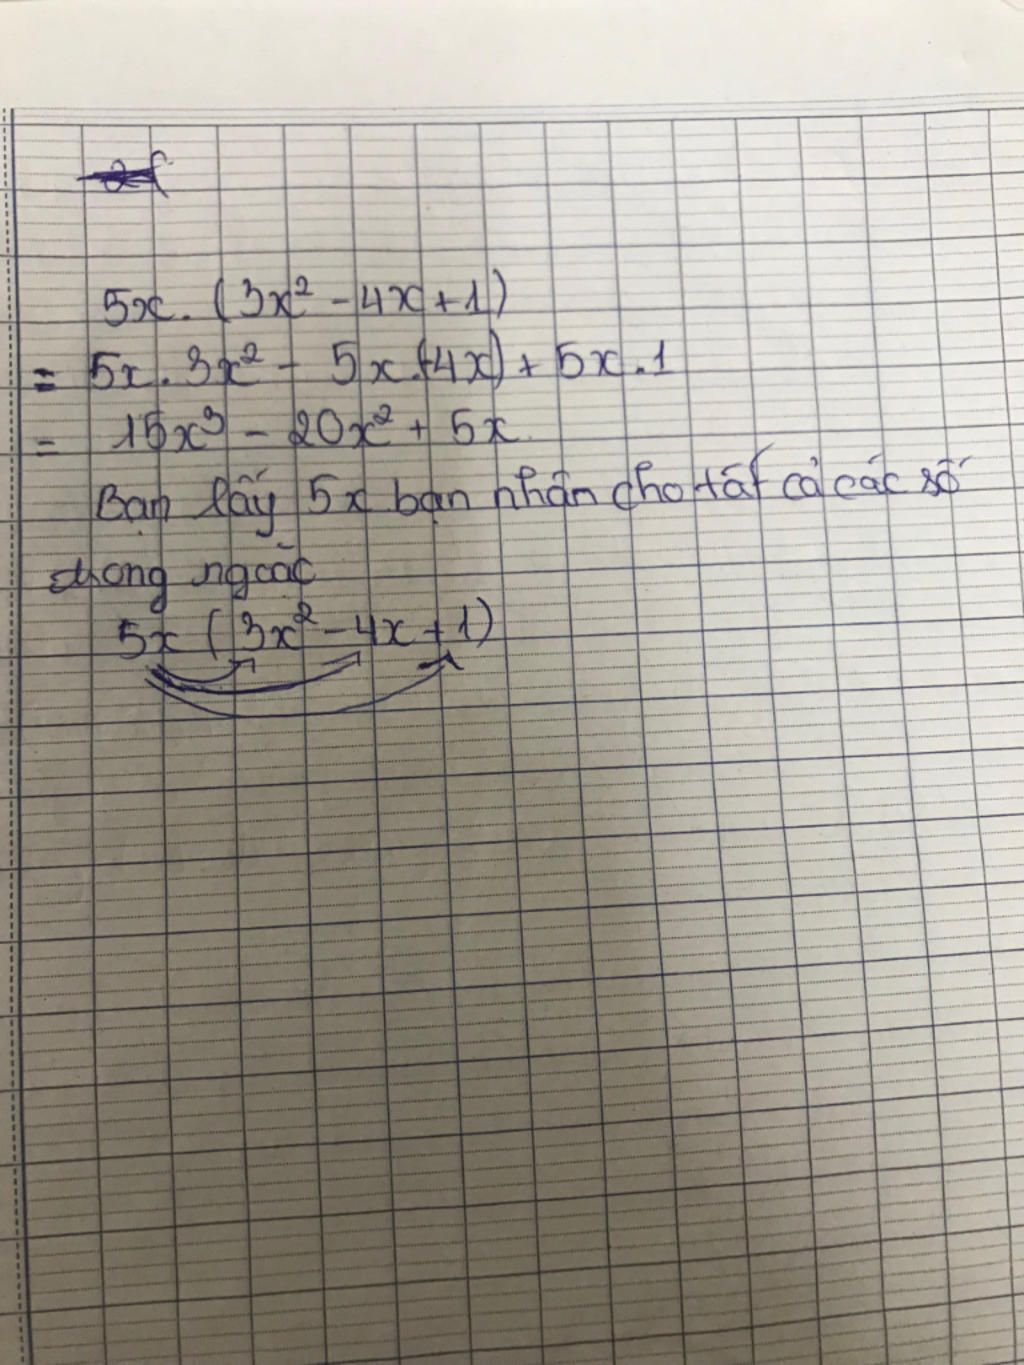 5x. (3x² - 4x + 1)
= 5x . 3x² - 5x.(-4x) + 5x . 1
= 15x³ - 20x² + 5x
Bạn lấy 5x bạn nhân cho tất cả các số
trong ngoặc
5x ( 3x² - 4x + 1)